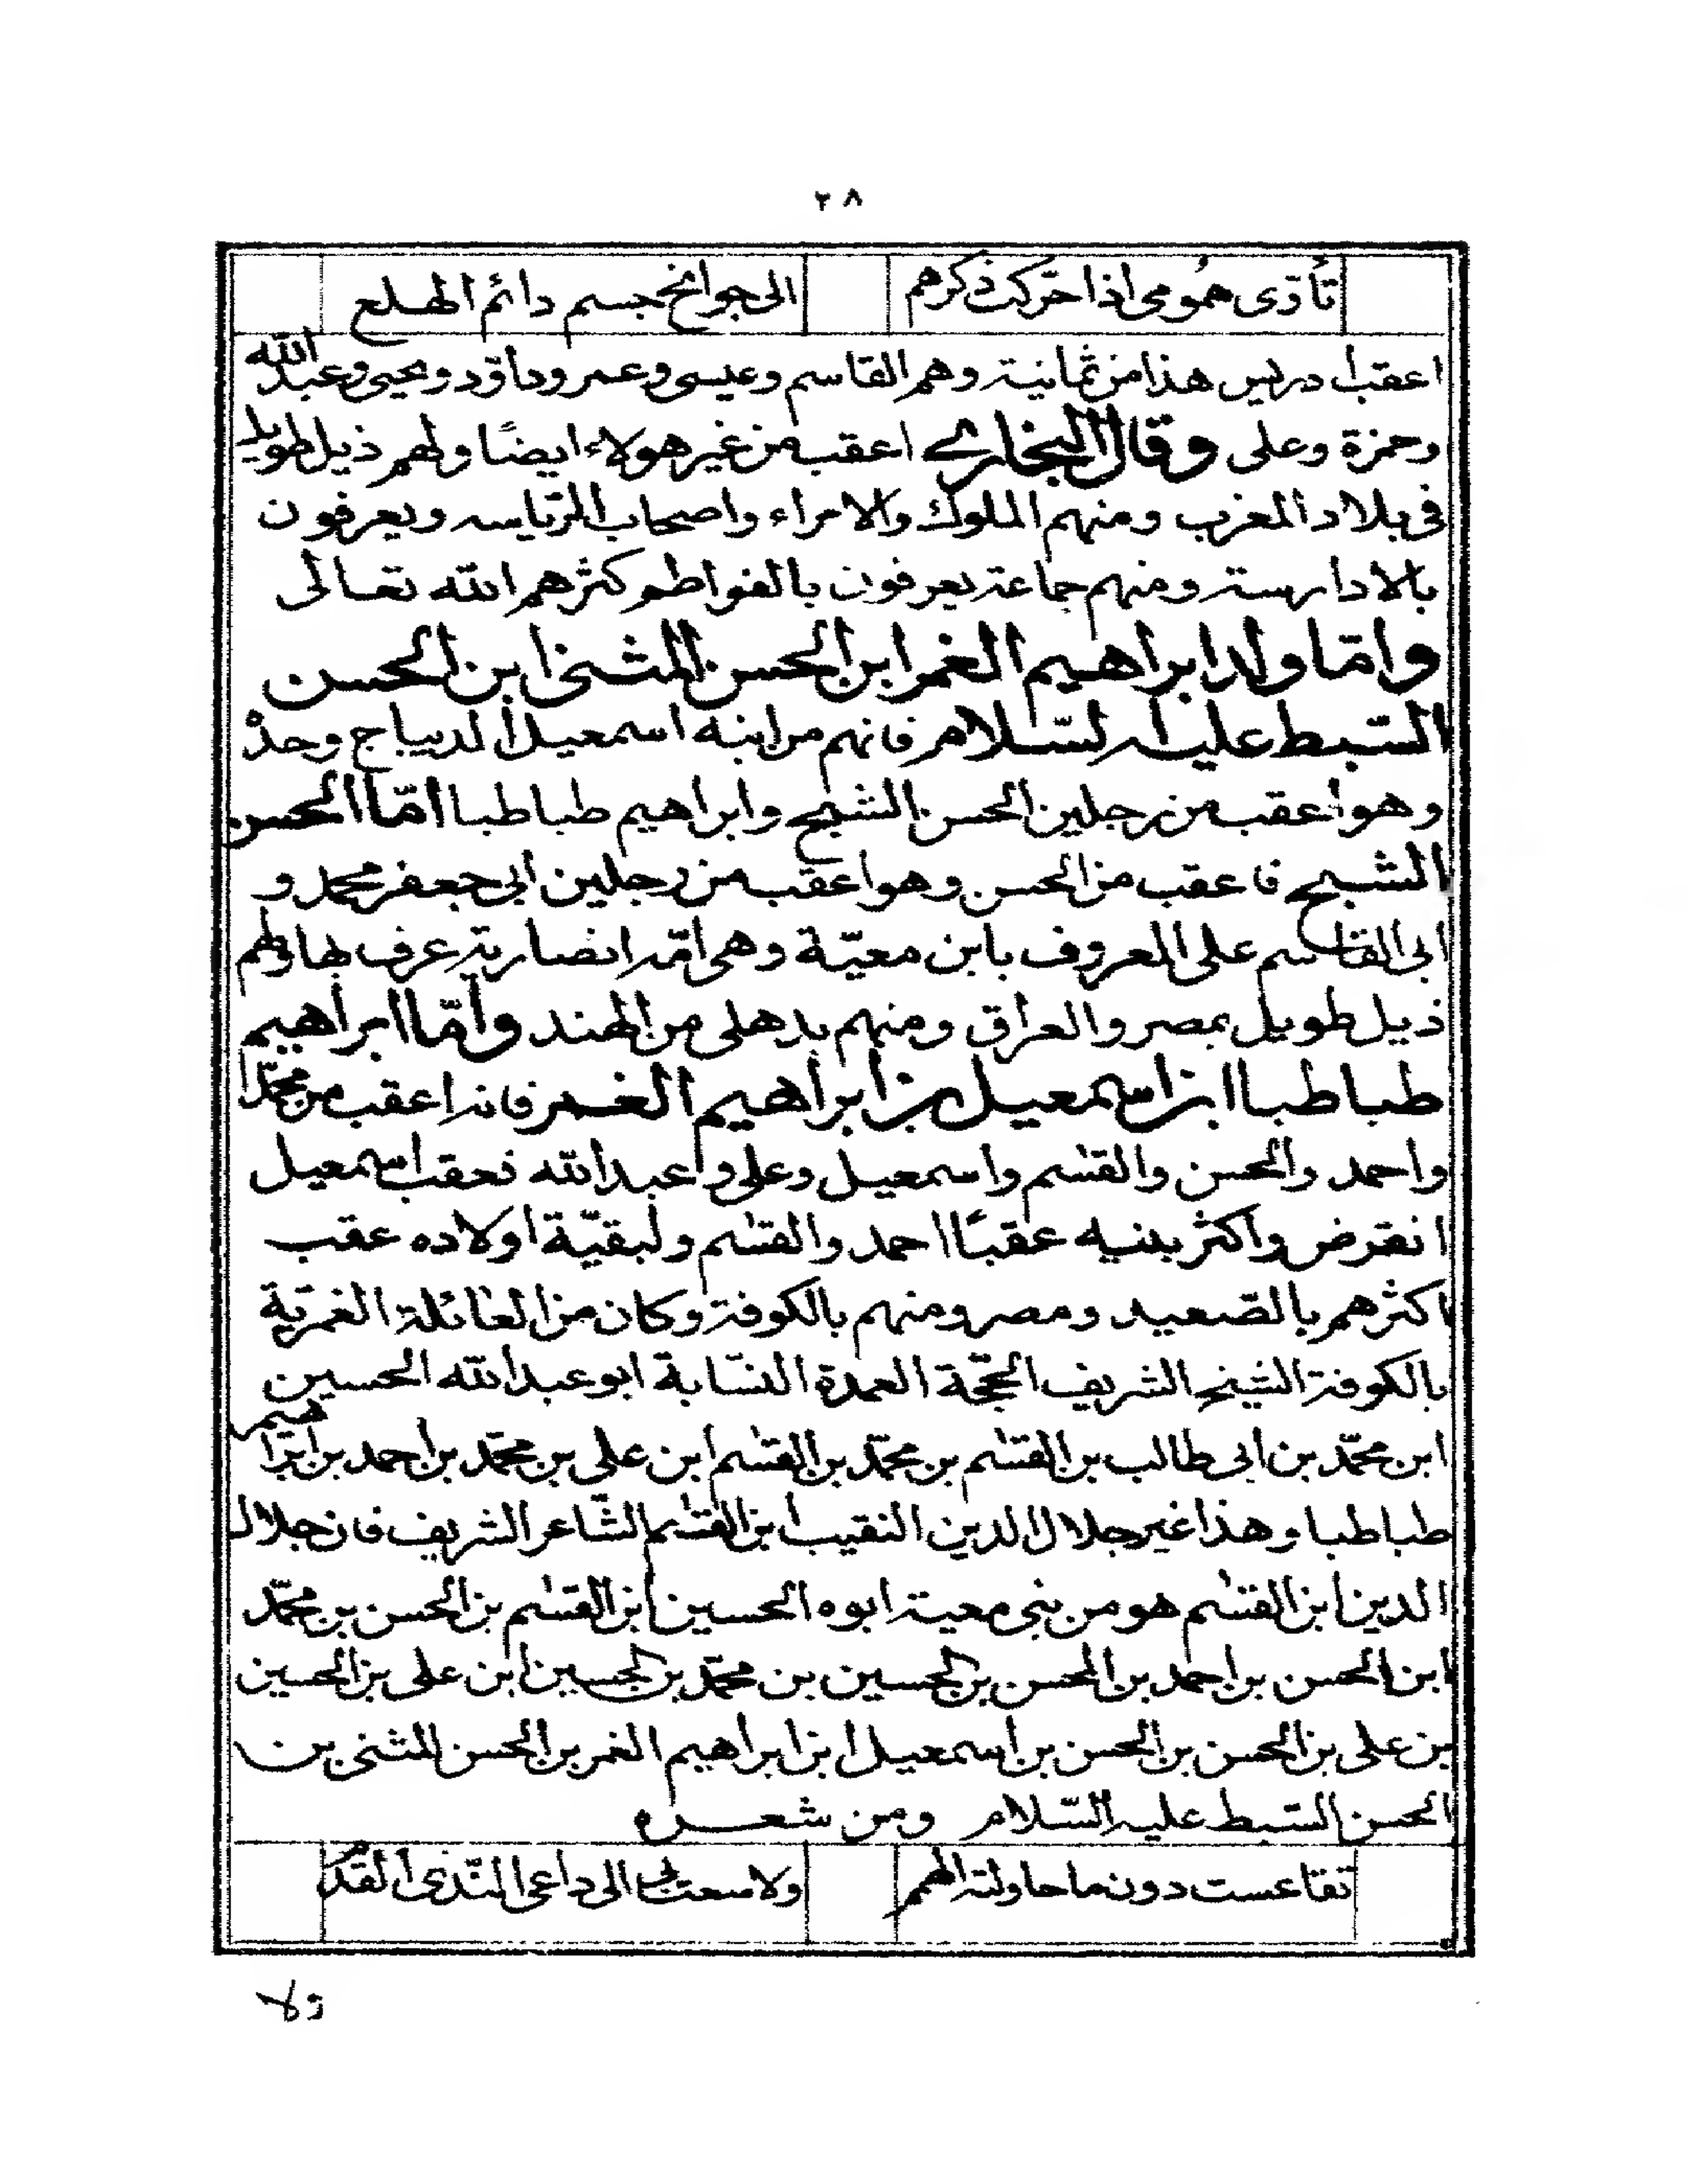 ٢٨
تأوى همومى اذا حركت ذكرهم الى جوانح جسم دائم الهلع
اعقب ادريس هذا من ثمانية وهم القاسم وعيسى وعمر وداؤد ويحيى وعبدالله
وحمزة وعلى وقال البخارى اعقب من غير هولاء ايضًا ولهم ذيل طويل
فى بلاد المغرب ومنهم الملوك والامراء واصحاب الرياسه ويعرفون
بالادارسة ومنهم جماعة يعرفون بالفواطم كثرهم الله تعالى
وامّا ولد ابراهيم الغمر ابن الحسن المثنى ابن الحسن
السّبط عليه السّلام فانهم من ابنه اسمعيل الديباج وحدهْ
وهو اعقب من رجلين الحسن الشبح وابراهيم طباطبا امّا الحسن
الشبح فاعقب من الحسن وهو اعقب من رجلين ابى جعفر محمد و
ابى القاسم على المعروف بابن معيّة وهى امّه انصارية عرف بها ولهم
ذيل طويل بمصر والعراق ومنهم بدهلى من الهند وامّا ابراهيم
طباطبا ابن اسمعيل بن ابراهيم الغمر فانه اعقب من محمّد
واحمد والحسن والقسم واسمعيل وعلى وعبدالله فعقب اسمعيل
انقرض واكثر بنيه عقبًا احمد والقسم ولبقيّة اولاده عقب
اكثرهم بالصّعيد ومصر ومنهم بالكوفة وكان من العائلة الغمريّة
بالكوفة الشيخ الشريف الحجّة العمدة النسّابة ابو عبدالله الحسين
ابن محمّد بن ابى طالب بن القسم بن محمّد بن القسم ابن على بن محمّد بن احمد بن ابراهيم
طباطبا وهذا غير جلال الدين النقيب ابن القسم الشّاعر الشريف فان جلال
الدين ابن القسم هو من بنى معية ابوه الحسين ابن القسم بن الحسن بن محمّد
ابن الحسن بن احمد بن المحسن بن الحسين بن محمّد بن الحسين ابن على بن الحسين
بن على بن الحسن بن الحسن بن اسمعيل ابن ابراهيم الغمر بن الحسن المثنى بن
الحسن السّبط عليه السّلام ومن شعره
تقاعست دون ما حاولته الهمم ولا سعت بى الى داعى النّدى القدم
ولا